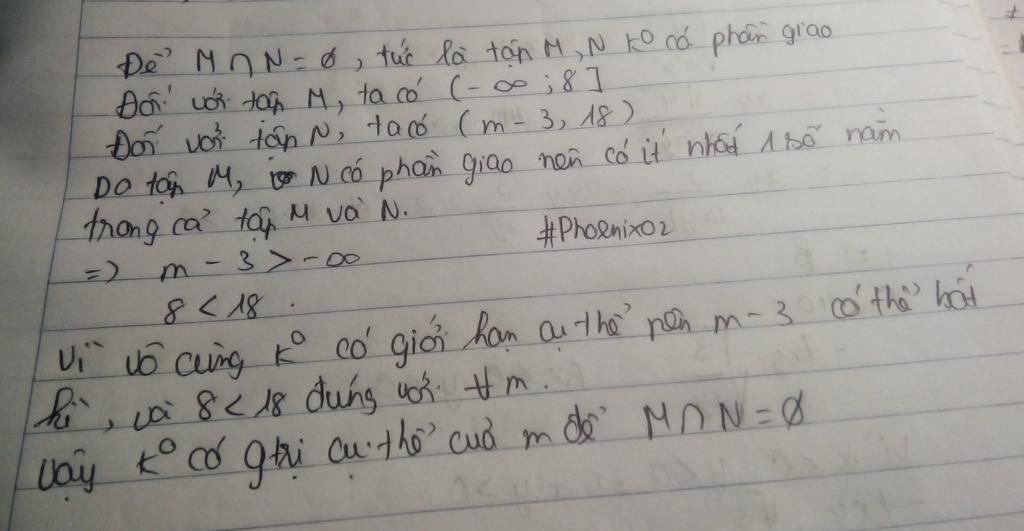 Để M ∩ N = ∅, tức là tập M, N k° có phần giao
Đối với tập M, ta có (-∞; 8]
Đối với tập N, ta có (m - 3, 18)
Do tập M, N có phần giao nên có ít nhất 1 số nằm
trong cả tập M và N.
#Phoenix02
=> m - 3 > -∞
8 < 18.
Vì vô cùng k° có giới hạn cụ thể nên m - 3 có thể bất
kì, và 8 < 18 đúng với ∀ m.
Vậy k° có gtrị cụ thể của m để M ∩ N = ∅